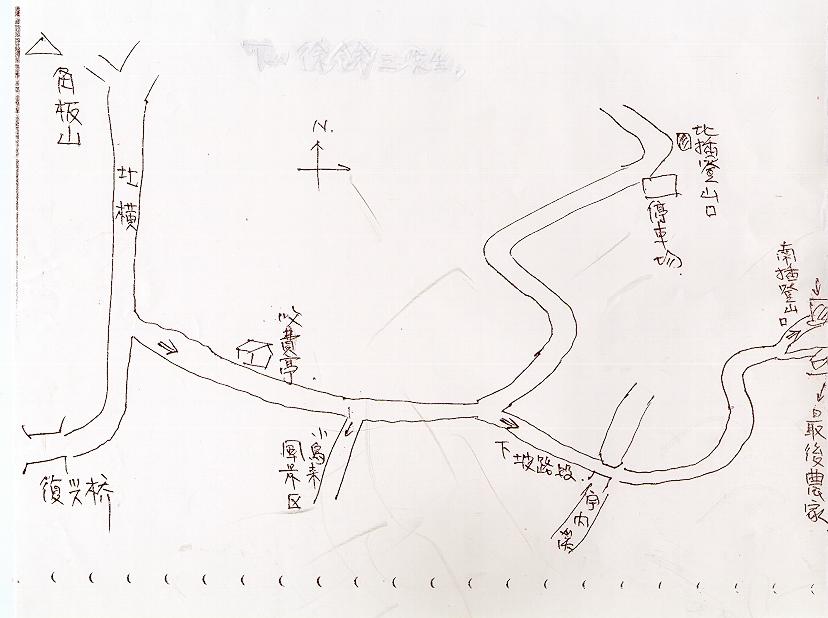 角板山
N.
北橫
北插登山口
停車場
南插登山口
收費亭
小烏來
風景区
下坡路段
宇内溪
最後農家
復兴桥